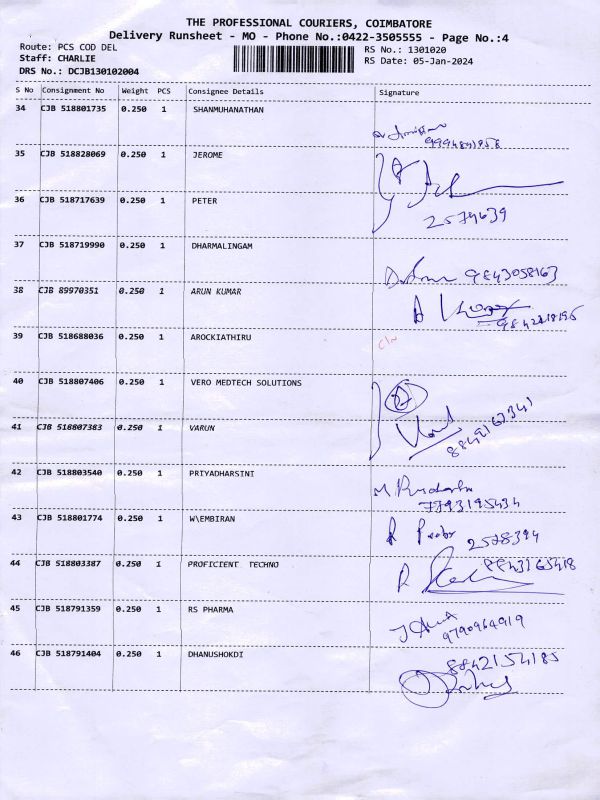 THE PROFESSIONAL COURIERS, COIMBATORE
Delivery Runsheet - MO - Phone No.:0422-3505555 - Page No.:4
Route: PCS COD DEL
RS No.: 1301020
Staff: CHARLIE
RS Date: 05-Jan-2024
DRS No.: DCJB130102004
S No Consignment No Weight PCS Consignee Details Signature
34 CJB 518801735 0.250 1 SHANMUHANATHAN
35 CJB 518828069 0.250 1 JEROME
36 CJB 518717639 0.250 1 PETER
2574639
37 CJB 518719990 0.250 1 DHARMALINGAM
9843058163
38 CJB 89970351 0.250 1 ARUN KUMAR
39 CJB 518688036 0.250 1 AROCKIATHIRU
40 CJB 518807406 0.250 1 VERO MEDTECH SOLUTIONS
41 CJB 518807383 0.250 1 VARUN
42 CJB 518803540 0.250 1 PRIYADHARSINI
7793195434
43 CJB 518801774 0.250 1 W\EMBIRAN
2578394
44 CJB 518803387 0.250 1 PROFICIENT TECHNO
45 CJB 518791359 0.250 1 RS PHARMA
9790964919
46 CJB 518791404 0.250 1 DHANUSHOKDI
8842154185